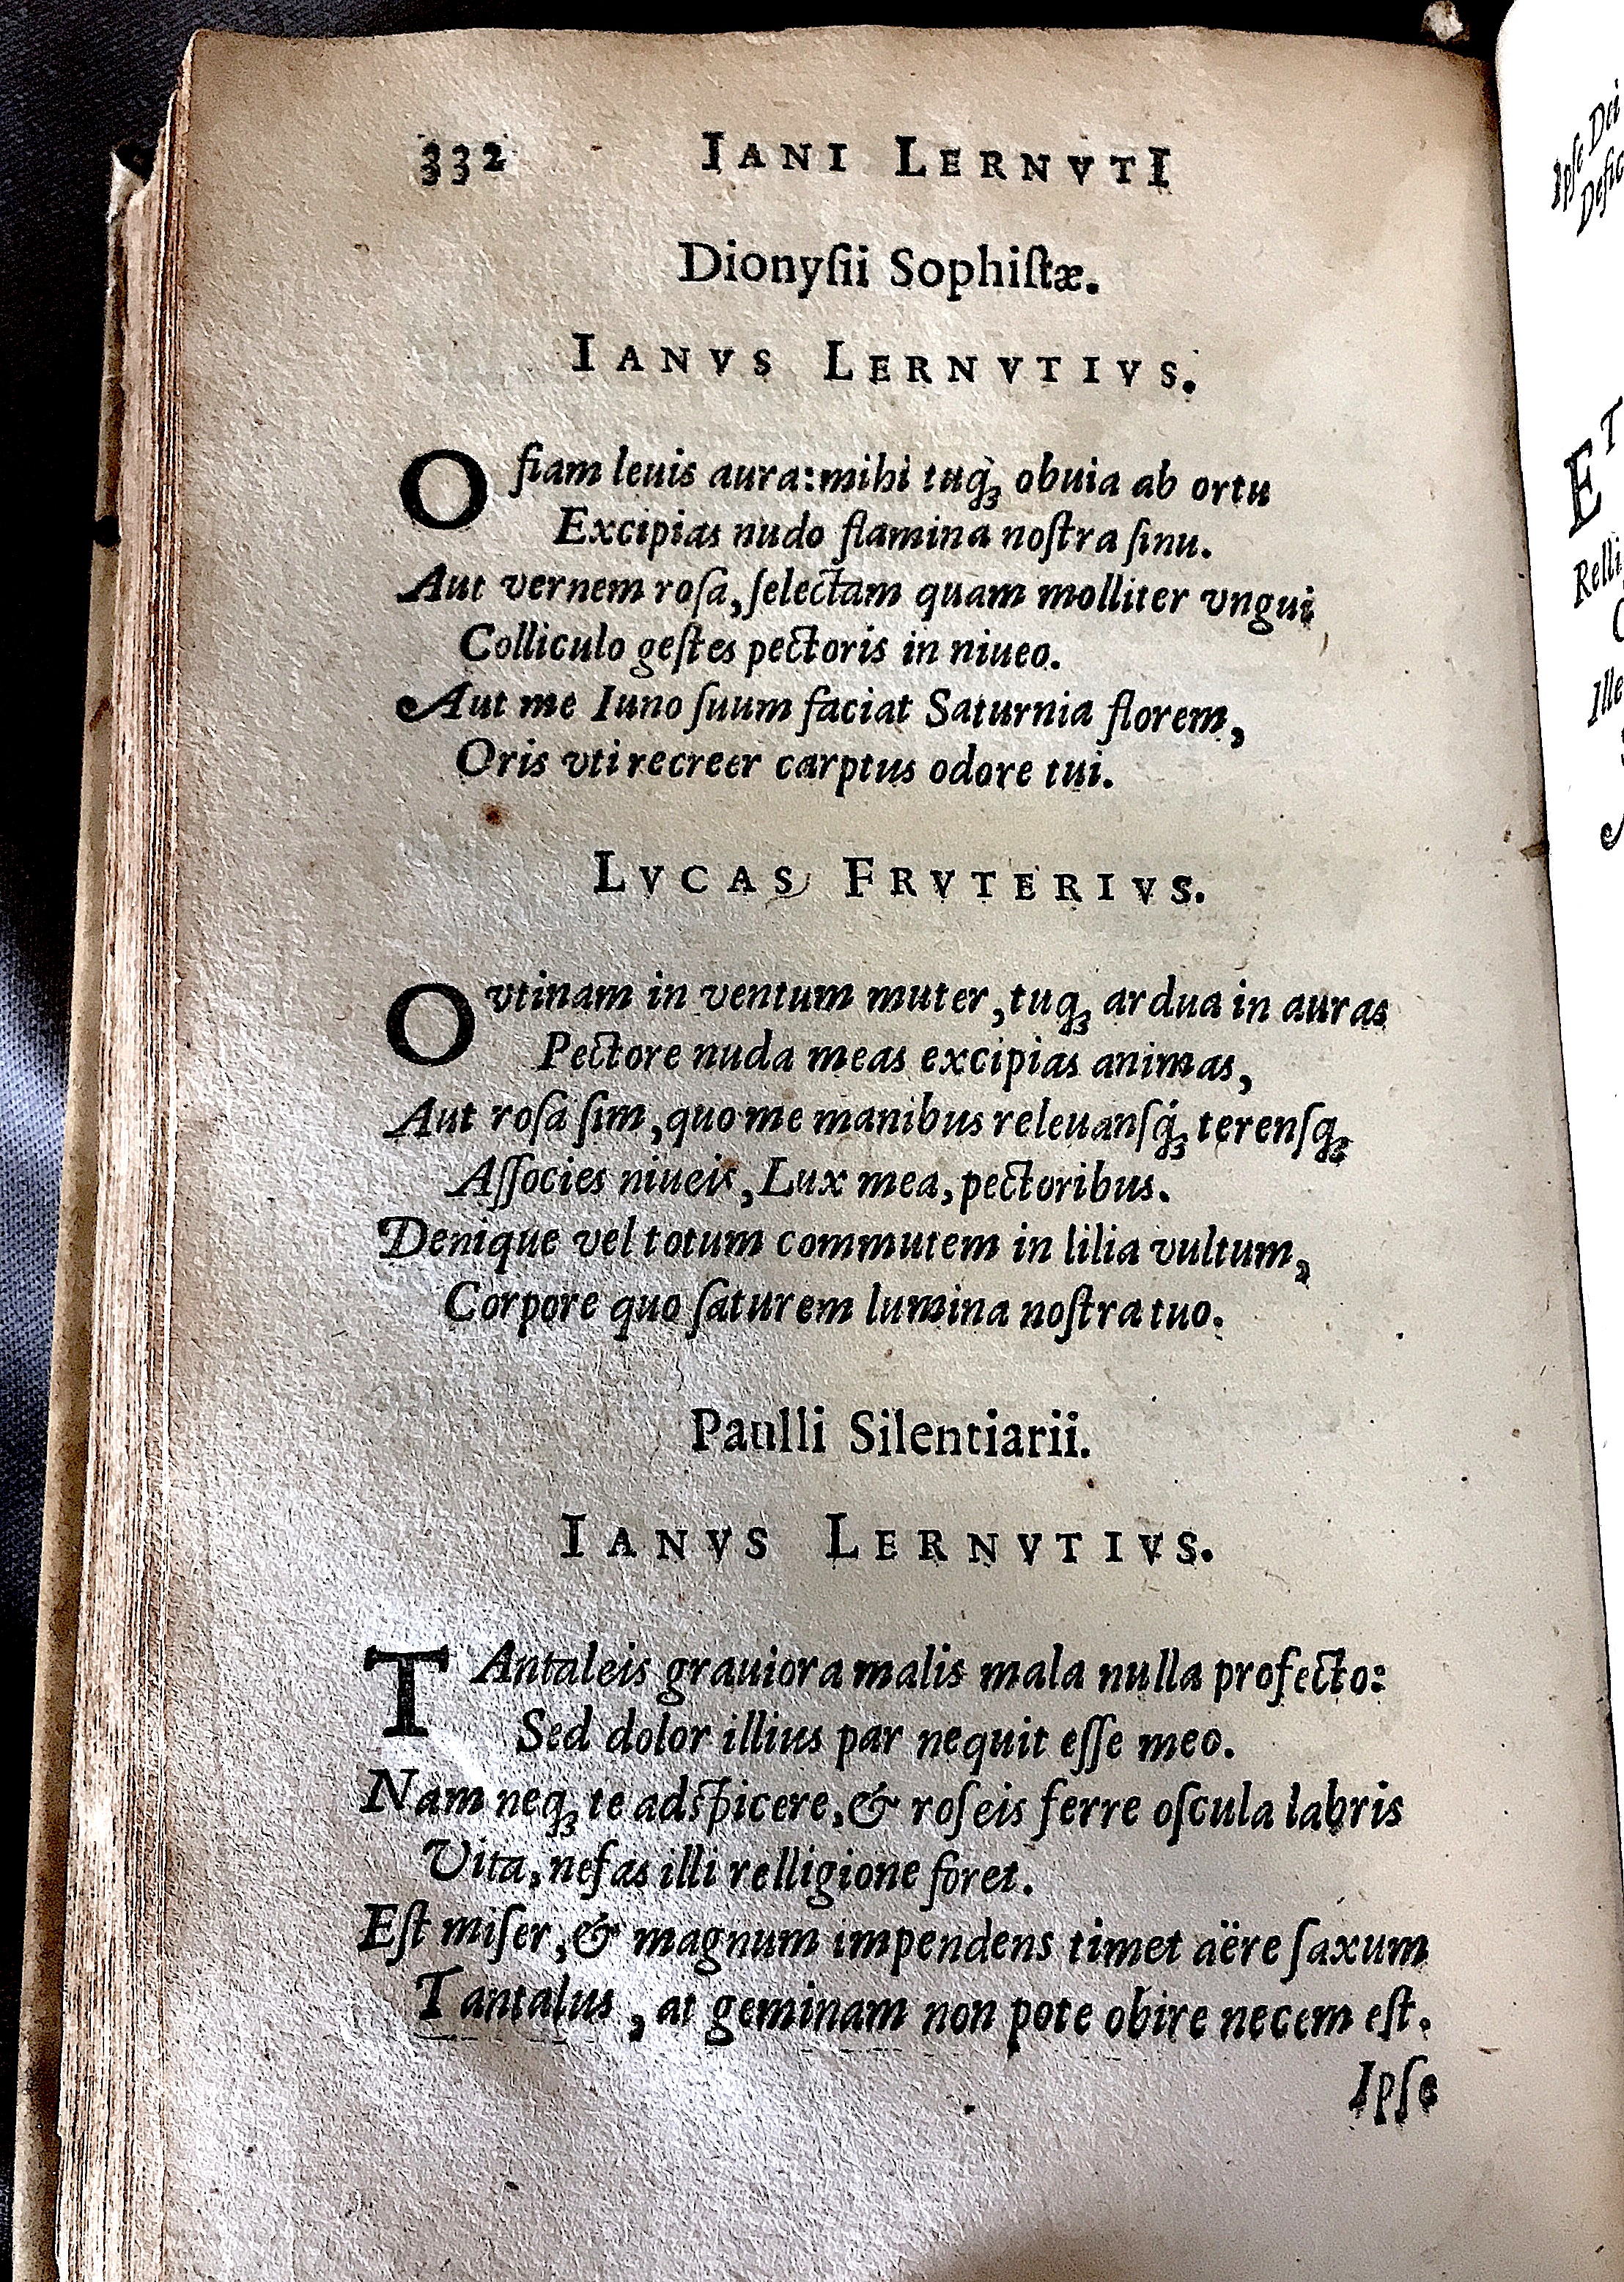 332 IANI LERNVTI
Dionyſii Sophiſtæ.
IANVS LERNVTIVS.
O ſiam leuis aura: mihi tuq́ꝫ obuia ab ortu
Excipias nudo flamina noſtra ſinu.
Aut vernem roſa, ſelectam quam molliter vngui
Colliculo geſtes pectoris in niueo.
Aut me Iuno ſuum faciat Saturnia florem,
Oris vti recreer carptus odore tui.
LVCAS FRVTERIVS.
O vtinam in ventum muter, tuqꝫ ardua in auras
Pectore nuda meas excipias animas,
Aut roſa ſim, quo me manibus releuanſq́ꝫ terenſqꝫ
Aſſocies niueis, Lux mea, pectoribus.
Denique vel totum commutem in lilia vultum,
Corpore quo ſaturem lumina noſtra tuo.
Paulli Silentiarii.
IANVS LERNVTIVS.
TAntaleis grauiora malis mala nulla profecto:
Sed dolor illius par nequit eſſe meo.
Nam neqꝫ te adſpicere, & roſeis ferre oſcula labris
Vita, nefas illi relligione foret.
Eſt miſer, & magnum impendens timet aëre ſaxum
Tantalus, at geminam non pote obire necem eſt.
Ipſe
Ipſe Dei
Relli
Ille